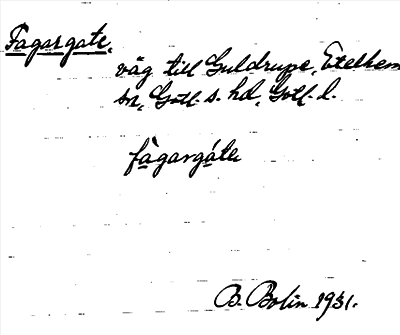 Fagargate,
väg till Guldrupe, Etelhem
sn, Gotl. s. hd, Gotl. l.
fàgargáte
B. Bolin 1931.